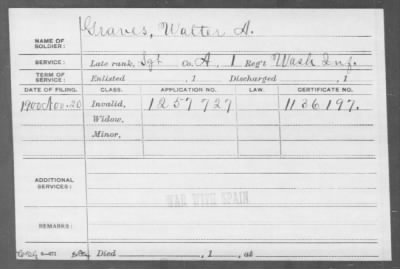 NAME OF SOLDIER: Graves, Walter A.
SERVICE: Late rank, Sgt Co. A, 1 Reg't Wash Inf.
TERM OF SERVICE: Enlisted , 1 Discharged , 1
DATE OF FILING. CLASS. APPLICATION NO. LAW. CERTIFICATE NO.
1900 Nov. 20 Invalid, 1257727 1136197.
Widow,
Minor,
ADDITIONAL SERVICES:
WAR WITH SPAIN
REMARKS:
Died , 1 , at